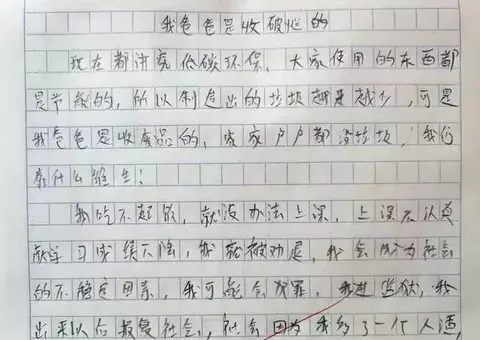 我爸爸是收破烂的
现在都讲究低碳环保、大家使用的东西都
是节能的,所以制造出的垃圾越来越少,可是
我爸爸是收废品的,家家户户都没垃圾,我们
靠什么维生!
我吃不起饭,就没办法上课,上课不认真
就学习成绩下降,我就被劝退,我会成为社会
的不稳定因素,我可能会犯罪,我进监狱,我
出来以后报复社会,社会因为我多了一个人渣,